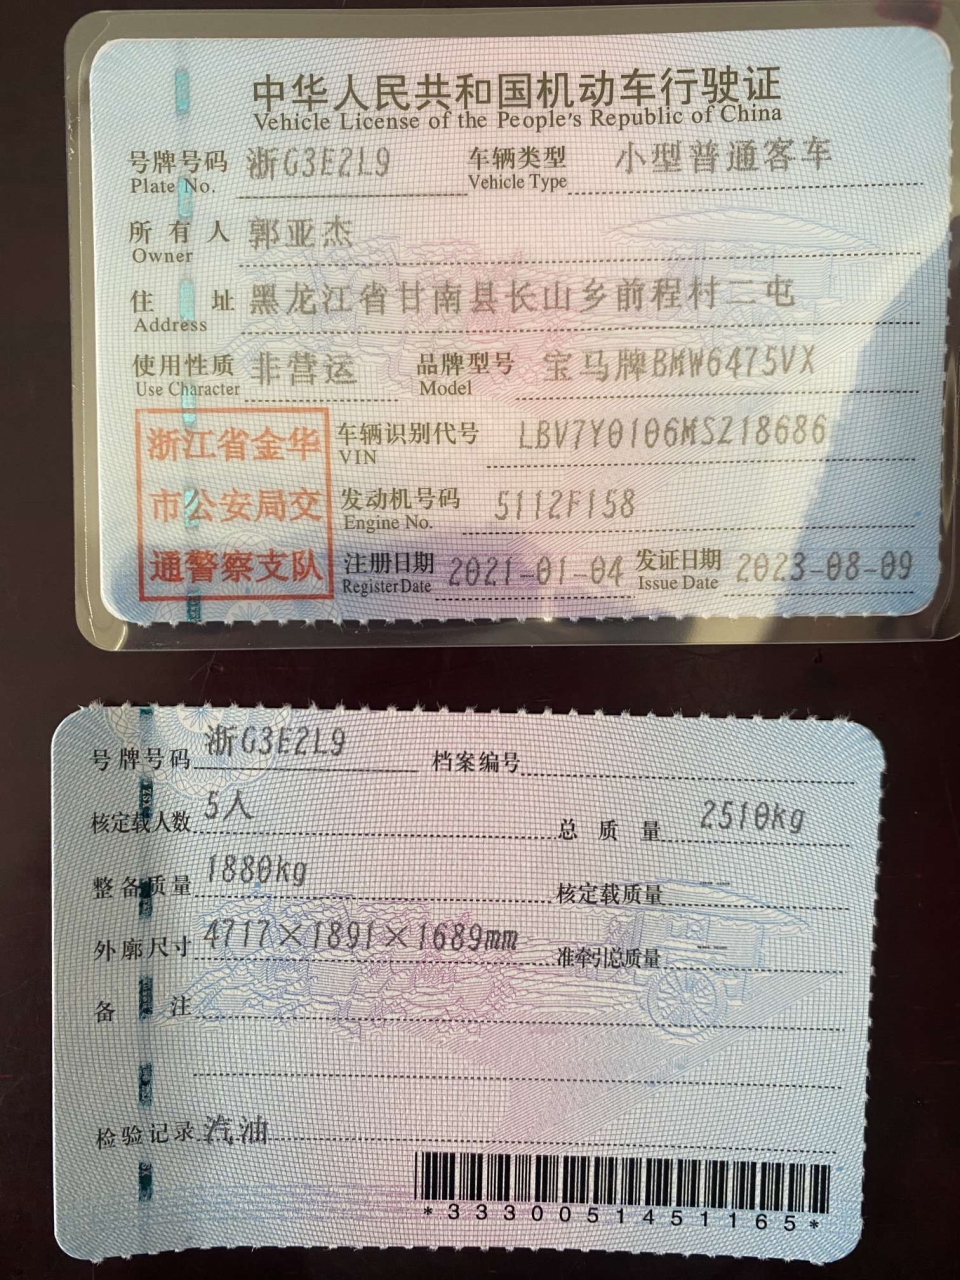 中华人民共和国机动车行驶证
Vehicle License of the People's Republic of China
号牌号码 浙G3E2L9 车辆类型 小型普通客车
Plate No. Vehicle Type
所有人 郭亚杰
Owner
住址 黑龙江省甘南县长山乡前程村二屯
Address
使用性质 非营运 品牌型号 宝马牌BMW6475VX
Use Character Model
浙江省金华
市公安局交
通警察支队
车辆识别代号 LBV7Y0106MSZ18686
VIN
发动机号码 5112F158
Engine No.
注册日期 2021-01-04 发证日期 2023-08-09
Register Date Issue Date
号牌号码 浙G3E2L9 档案编号
核定载人数 5人 总质量 2510kg
整备质量 1880kg 核定载质量 --
外廓尺寸 4717×1891×1689mm 准牵引总质量 --
备注
检验记录 汽油
*3330051451165*